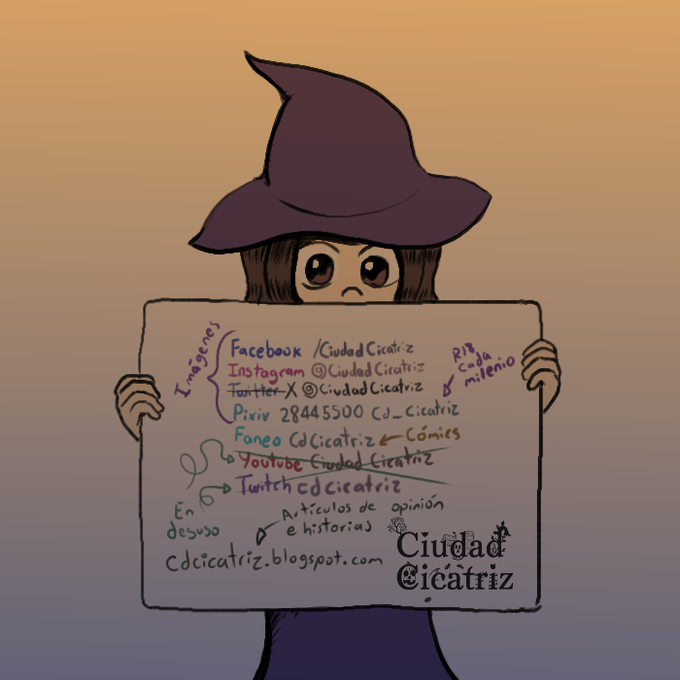 Imágenes
Facebook /CiudadCicatriz
Instagram @CiudadCicatriz
Twitter X @CiudadCicatriz
Pixiv 28445500 Cd_Cicatriz
R18 cada milenio
Faneo CdCicatriz ← Cómics
Youtube Ciudad Cicatriz
Twitch cdcicatriz
En desuso
Artículos de opinión
e historias
cdcicatriz.blogspot.com
Ciudad
Cicatriz